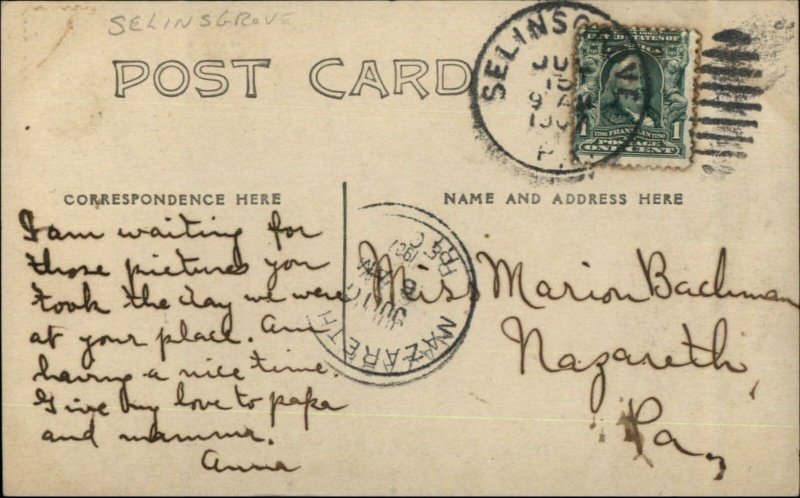 SELINSGROVE
POST CARD
SELINSGROVE
1907
PA
UNITED STATES OF
1706 FRANKLIN 1790
1 POSTAGE 1
ONE CENT
CORRESPONDENCE HERE
NAME AND ADDRESS HERE
I am waiting for
those pictures you
took the day we were
at your place. Am
having a nice time.
Give my love to papa
and mamma.
Anna
NAZARETH
1907
REC'D
Miss Marion Bachman
Nazareth,
Pa,